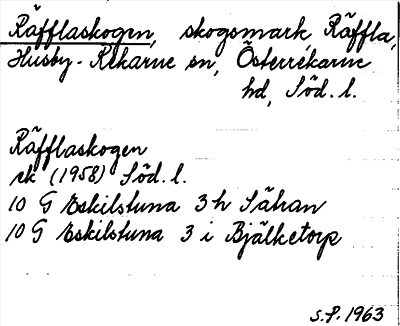 Räfflaskogen, skogsmark, Räffla,
Husby-Rekarne sn, Österrekarne
hd, Söd. l.
Räfflaskogen
rk (1958) Söd. l.
10 G Eskilstuna 3 h Sähan
10 G Eskilstuna 3 i Bjälketorp
S.P. 1963